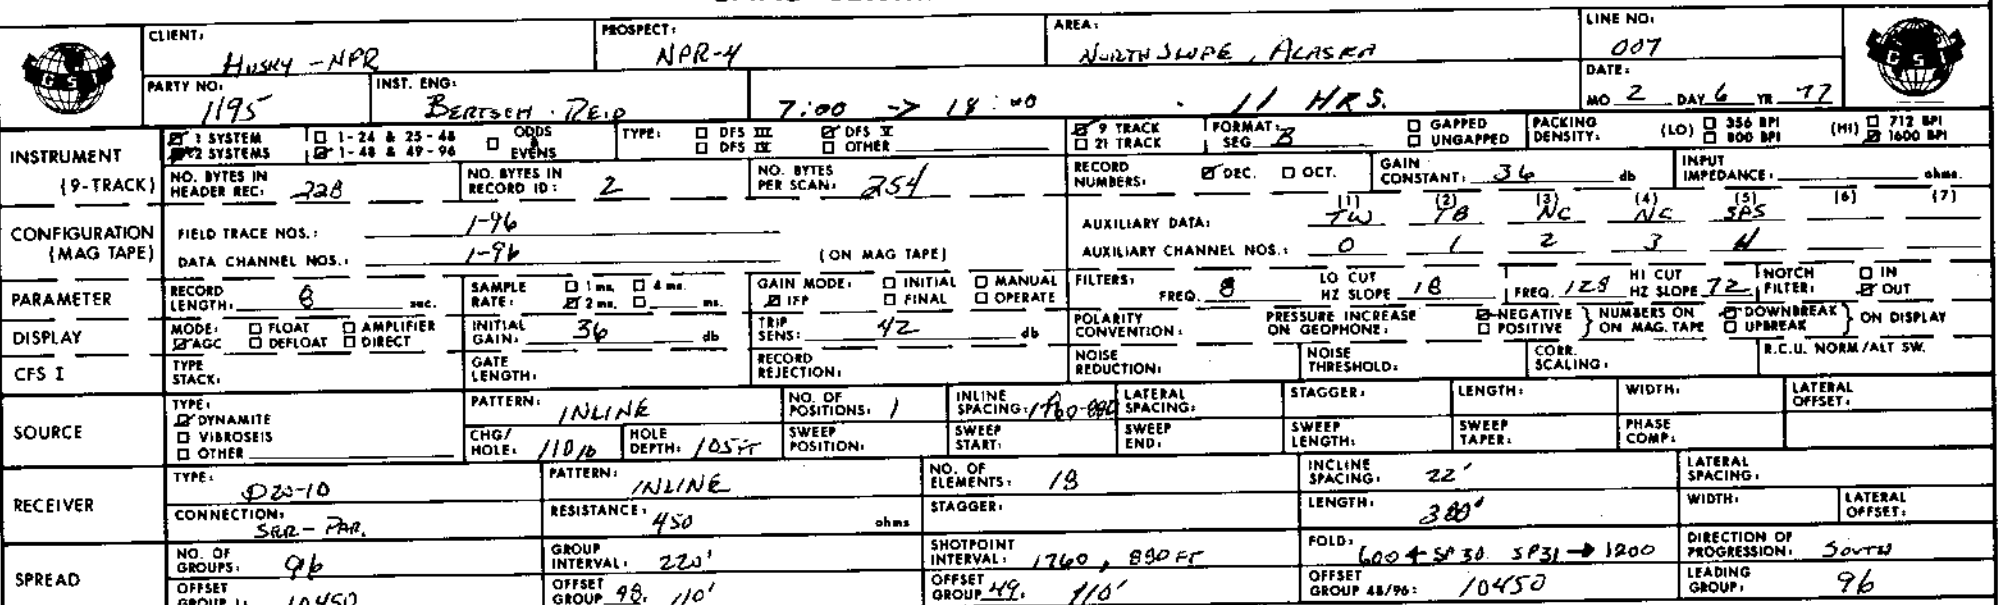 CLIENT: Husky - NPR PROSPECT: NPR-4 AREA: NORTH SLOPE, ALASKA LINE NO: 007
GSI GSI
PARTY NO: 1195 INST. ENG: BERTSCH - REID 7:00 -> 18:00 - 11 HRS. DATE: MO 2 DAY 6 YR 77
INSTRUMENT (9-TRACK) 1 SYSTEM 1-24 & 25-48 ODDS & EVENS TYPE: DFS III DFS V 9 TRACK FORMAT: SEG B GAPPED PACKING DENSITY: (LO) 356 BPI (HI) 712 BPI
2 SYSTEMS 1-48 & 49-96 DFS IV OTHER 21 TRACK UNGAPPED 800 BPI 1600 BPI
NO. BYTES IN HEADER REC: 228 NO. BYTES IN RECORD ID: 2 NO. BYTES PER SCAN: 254 RECORD NUMBERS: DEC. OCT. GAIN CONSTANT: 36 db INPUT IMPEDANCE: ohms.
CONFIGURATION (MAG TAPE) FIELD TRACE NOS.: 1-96 AUXILIARY DATA: (1) TW (2) TB (3) NC (4) NC (5) SPS (6) (7)
DATA CHANNEL NOS.: 1-96 (ON MAG TAPE) AUXILIARY CHANNEL NOS.: 0 1 2 3 4
PARAMETER RECORD LENGTH: 8 sec. SAMPLE RATE: 1 ms. 4 ms. 2 ms. ms. GAIN MODE: INITIAL MANUAL IFP FINAL OPERATE FILTERS: FREQ. 8 LO CUT HZ SLOPE 18 FREQ. 128 HI CUT HZ SLOPE 72 NOTCH FILTER: IN OUT
DISPLAY MODE: FLOAT AMPLIFIER AGC DEFLOAT DIRECT INITIAL GAIN: 36 db TRIP SENS: 42 db POLARITY CONVENTION: PRESSURE INCREASE ON GEOPHONE: NEGATIVE POSITIVE NUMBERS ON ON MAG. TAPE DOWNBREAK UPBREAK ON DISPLAY
CFS I TYPE STACK: GATE LENGTH: RECORD REJECTION: NOISE REDUCTION: NOISE THRESHOLD: CORR. SCALING: R.C.U. NORM/ALT SW.
SOURCE TYPE: DYNAMITE VIBROSEIS OTHER PATTERN: INLINE NO. OF POSITIONS: 1 INLINE SPACING: 1760-880 LATERAL SPACING: STAGGER: LENGTH: WIDTH: LATERAL OFFSET:
CHG/HOLE: 110 lb HOLE DEPTH: 105 FT SWEEP POSITION: SWEEP START: SWEEP END: SWEEP LENGTH: SWEEP TAPER: PHASE COMP:
RECEIVER TYPE: D20-10 PATTERN: INLINE NO. OF ELEMENTS: 18 INCLINE SPACING: 22' LATERAL SPACING:
CONNECTION: SER-PAR. RESISTANCE: 450 ohms STAGGER: LENGTH: 380' WIDTH: LATERAL OFFSET:
SPREAD NO. OF GROUPS: 96 GROUP INTERVAL: 220' SHOTPOINT INTERVAL: 1760, 880 FT FOLD: 600 ← SP 30. SP31 → 1200 DIRECTION OF PROGRESSION: SOUTH
OFFSET GROUP 1: 10450 OFFSET GROUP 48: 110' OFFSET GROUP 49: 110' OFFSET GROUP 48/96: 10450 LEADING GROUP: 96